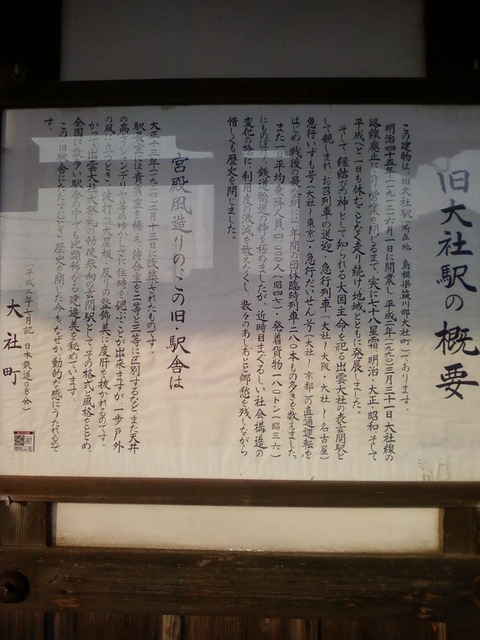 旧大社駅の概要
この建物は、旧大社駅（所在地 島根県簸川郡大社町）であります。
明治四十五年（一九一二）六月一日に開業し、平成二年（一九九〇）三月三十一日大社線の
路線廃止により、駅を閉じるまで、実に七十八星霜、明治・大正・昭和 そして
平成へと一日も休むことなく走り続け、地域とともに発展しました。
そして、縁結びの神として知られる大国主命を祀る出雲大社の表玄関駅と
して親しまれ、お召列車の送迎、急行列車（大社〜大阪・大社〜名古屋）
急行いずも号（大社〜東京）、急行だいせん号（大社〜京都）の直通運転を
はじめ、戦後の最盛期には一年間の団体臨時列車二八〇本もの多きを数えました。
また一日平均乗降人員四〇〇〇人（昭四七）・発着貨物一八〇トン（昭三六）
にものぼり、鉄道輸送の粋を極めましたが、近時目まぐるしい社会構造の
変化の時に利用度の激減を数えなくし、数々のあしあとと郷愁を残しながら
惜しくも歴史を閉じました。
宮殿風造りの、この旧・駅舎は
大正十三年（一九二四）二月十三日に改築されたものです。
駅長室には貴賓室を備え、待合室を二等と三等に区別するなど、また天井
の高さ、シャンデリア等のゆかしさに往時を偲ぶことが出来ますが、一歩戸外
の風に立つとき、波打つ大屋根、反りの整飾美に度肝を抜かれるのです。
かつて出雲大社
の玄関駅としてその格式と風格をとどめ、
全国に数多い駅舎の中でも比類稀なる建造美を秘めています。
この旧駅舎にたたずむとき、歴史を閉じた今もなぜか動的な感にうたれるので
す。
（平成二年十月記・日本鉄道OB会）
大社町